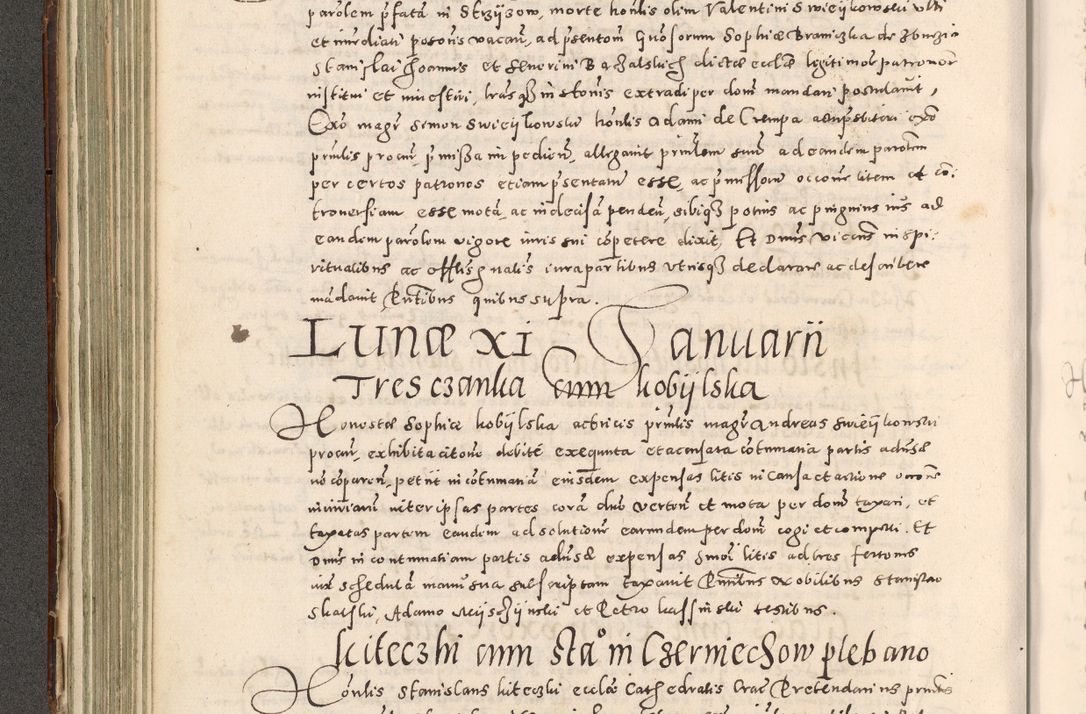 parolem pfata in Strzisow, morte honlis olim Valentini Swieykowski ulti
et imediati posonis vacan, ad psentom Gnosorum Sophiæ Braniczka de
Stanislai Joannis et Severini Bachalskich dictæ ecclæ legitimor patronor
institui et investiri, lrasq in stonis extradi per dom mandari postulavit,
Exo magr Simon Swieykowski honlis Adami de Crempa
prinlis procur, pmissa in pedien, allegavit prinlem suum ad eandem parolem
per certos patronos etiam psentatum esse, ac pmissor occone litem et co:
troversiam esse mota, ac indecisa penden, sibiq potius ac pinguius ius ad
eandem parolem vigore iuris sui copetere dixit, Et Dnus vicens in spi:
ritualibus ac offlis gnalis iura partibus utrisq declarare ac describere
madavit Pntibus quibus supra.
Lunæ xi Januarii
Tresczanka cum kobylska
Honestæ Sophiæ kobylska actricis prinlis magr Andreas Swieykowski
procur, exhibita citone debite exequuta et accusata cotumatia partis adversæ
no coparen, petiit in cotumatia eiusdem expensas litis in causa et actione
iniuriarum inter ipsas partes cora dno verten et mota per dom taxari, et
taxatas partem eandem ad solutionem earumdem per dom cogi et compelli. Et
Dnus in contumatiam partis adversæ expensas litis ad tres fertones
iux schedula manu sua subscriptam taxavit Pntibus nobilibus Stanislao
Skarski, Adamo et Petro testibus.
kiteczki cum Sta° in Czerniechow plebano
Honlis Stanislaus kiteczki ecclæ Cathedralis Crac Prebendarius prinlis